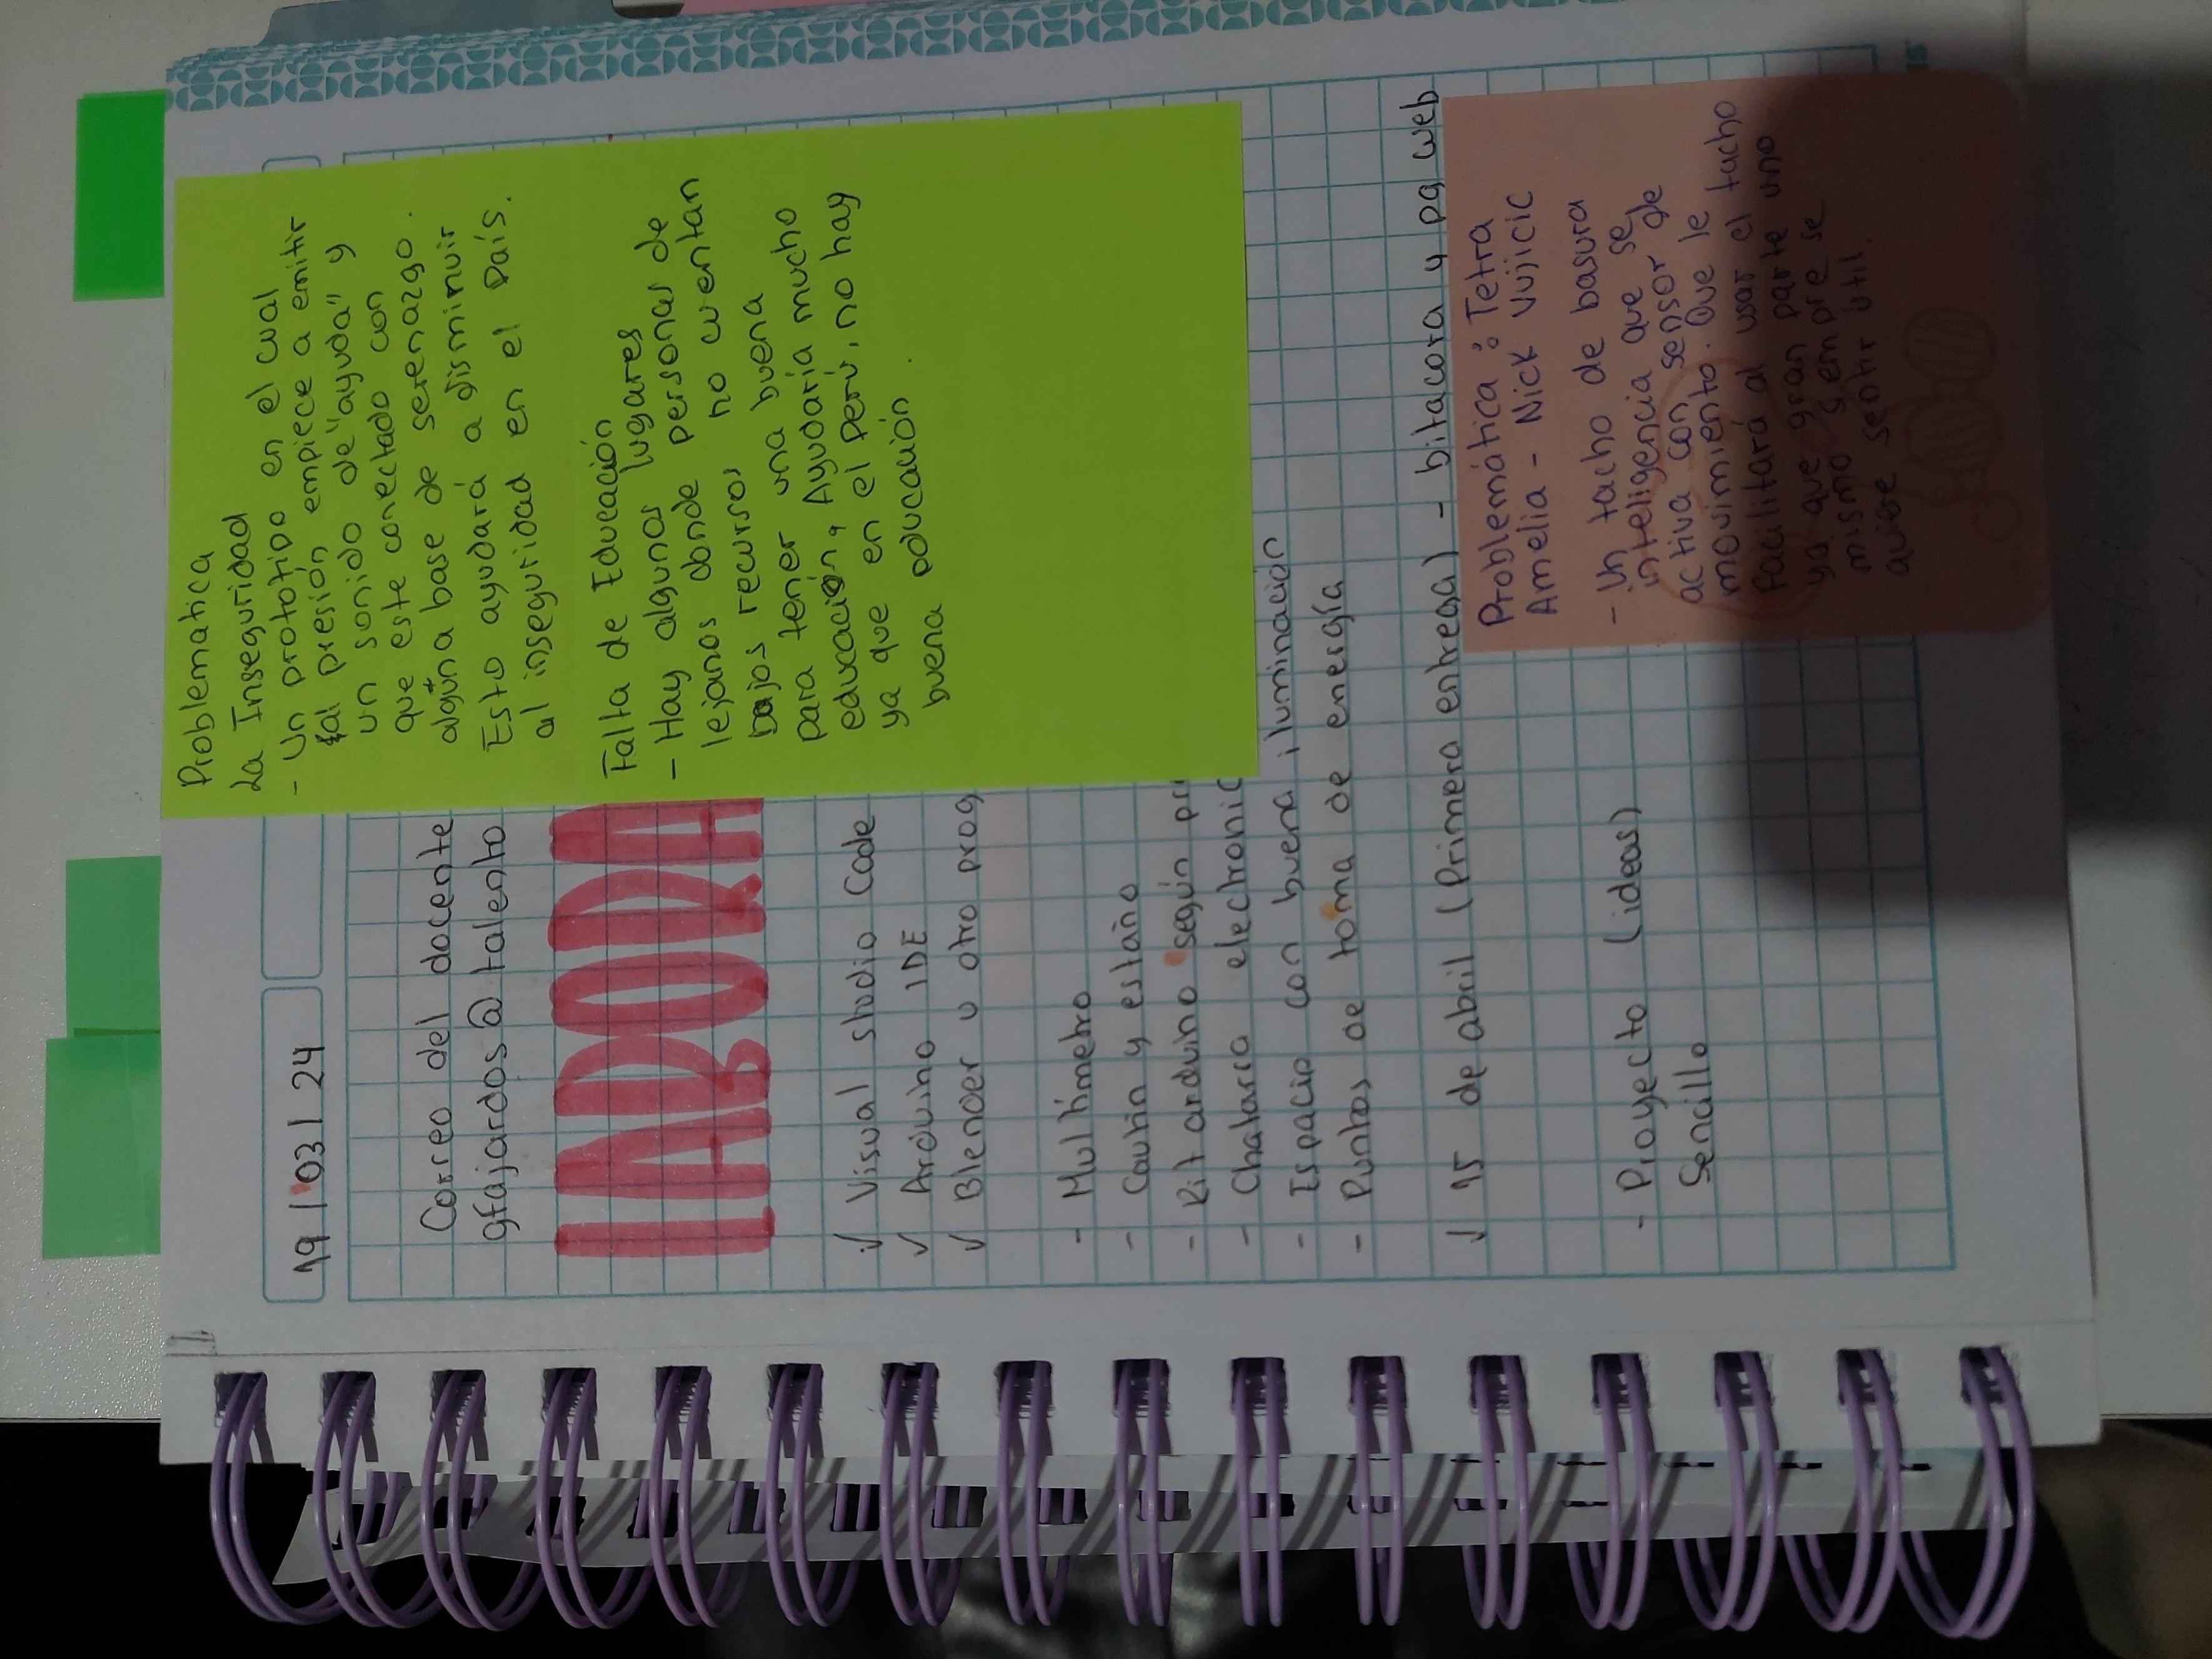 19 / 03 / 24
Correo del docente
gfajardos@talento
LABORA
✓ Visual studio Code
✓ Arduino IDE
✓ Blender u otro prog
- Multímetro
- Cautin y estaño
- Kit arduino según pr
- Chatarra electronic
- Espacio con buena iluminación
- Puntos de toma de energía
✓ 15 de abril (Primera entrega) - bitacora y pg web
- Proyecto (ideas)
Sencillo
Problematica
La Inseguridad
- Un prototipo en el cual
al presión empiece a emitir
un sonido de "ayuda" y
que este conectado con
alguna base de serenazgo.
Esto ayudará a disminuir
al inseguridad en el País.
Falta de Educación
- Hay algunos lugares
lejanos donde personas de
bajos recursos no cuentan
para tener una buena
educación, Ayudaría mucho
ya que en el Perú, no hay
buena educación.
Problemática : Tetra
Amelia - Nick Vujicic
- Un tacho de basura
inteligencia que se
activa con sensor de
movimiento. Que le
Facilitará al usar el tacho
ya que gran parte uno
mismo sempre se
quiere sentir útil.
15